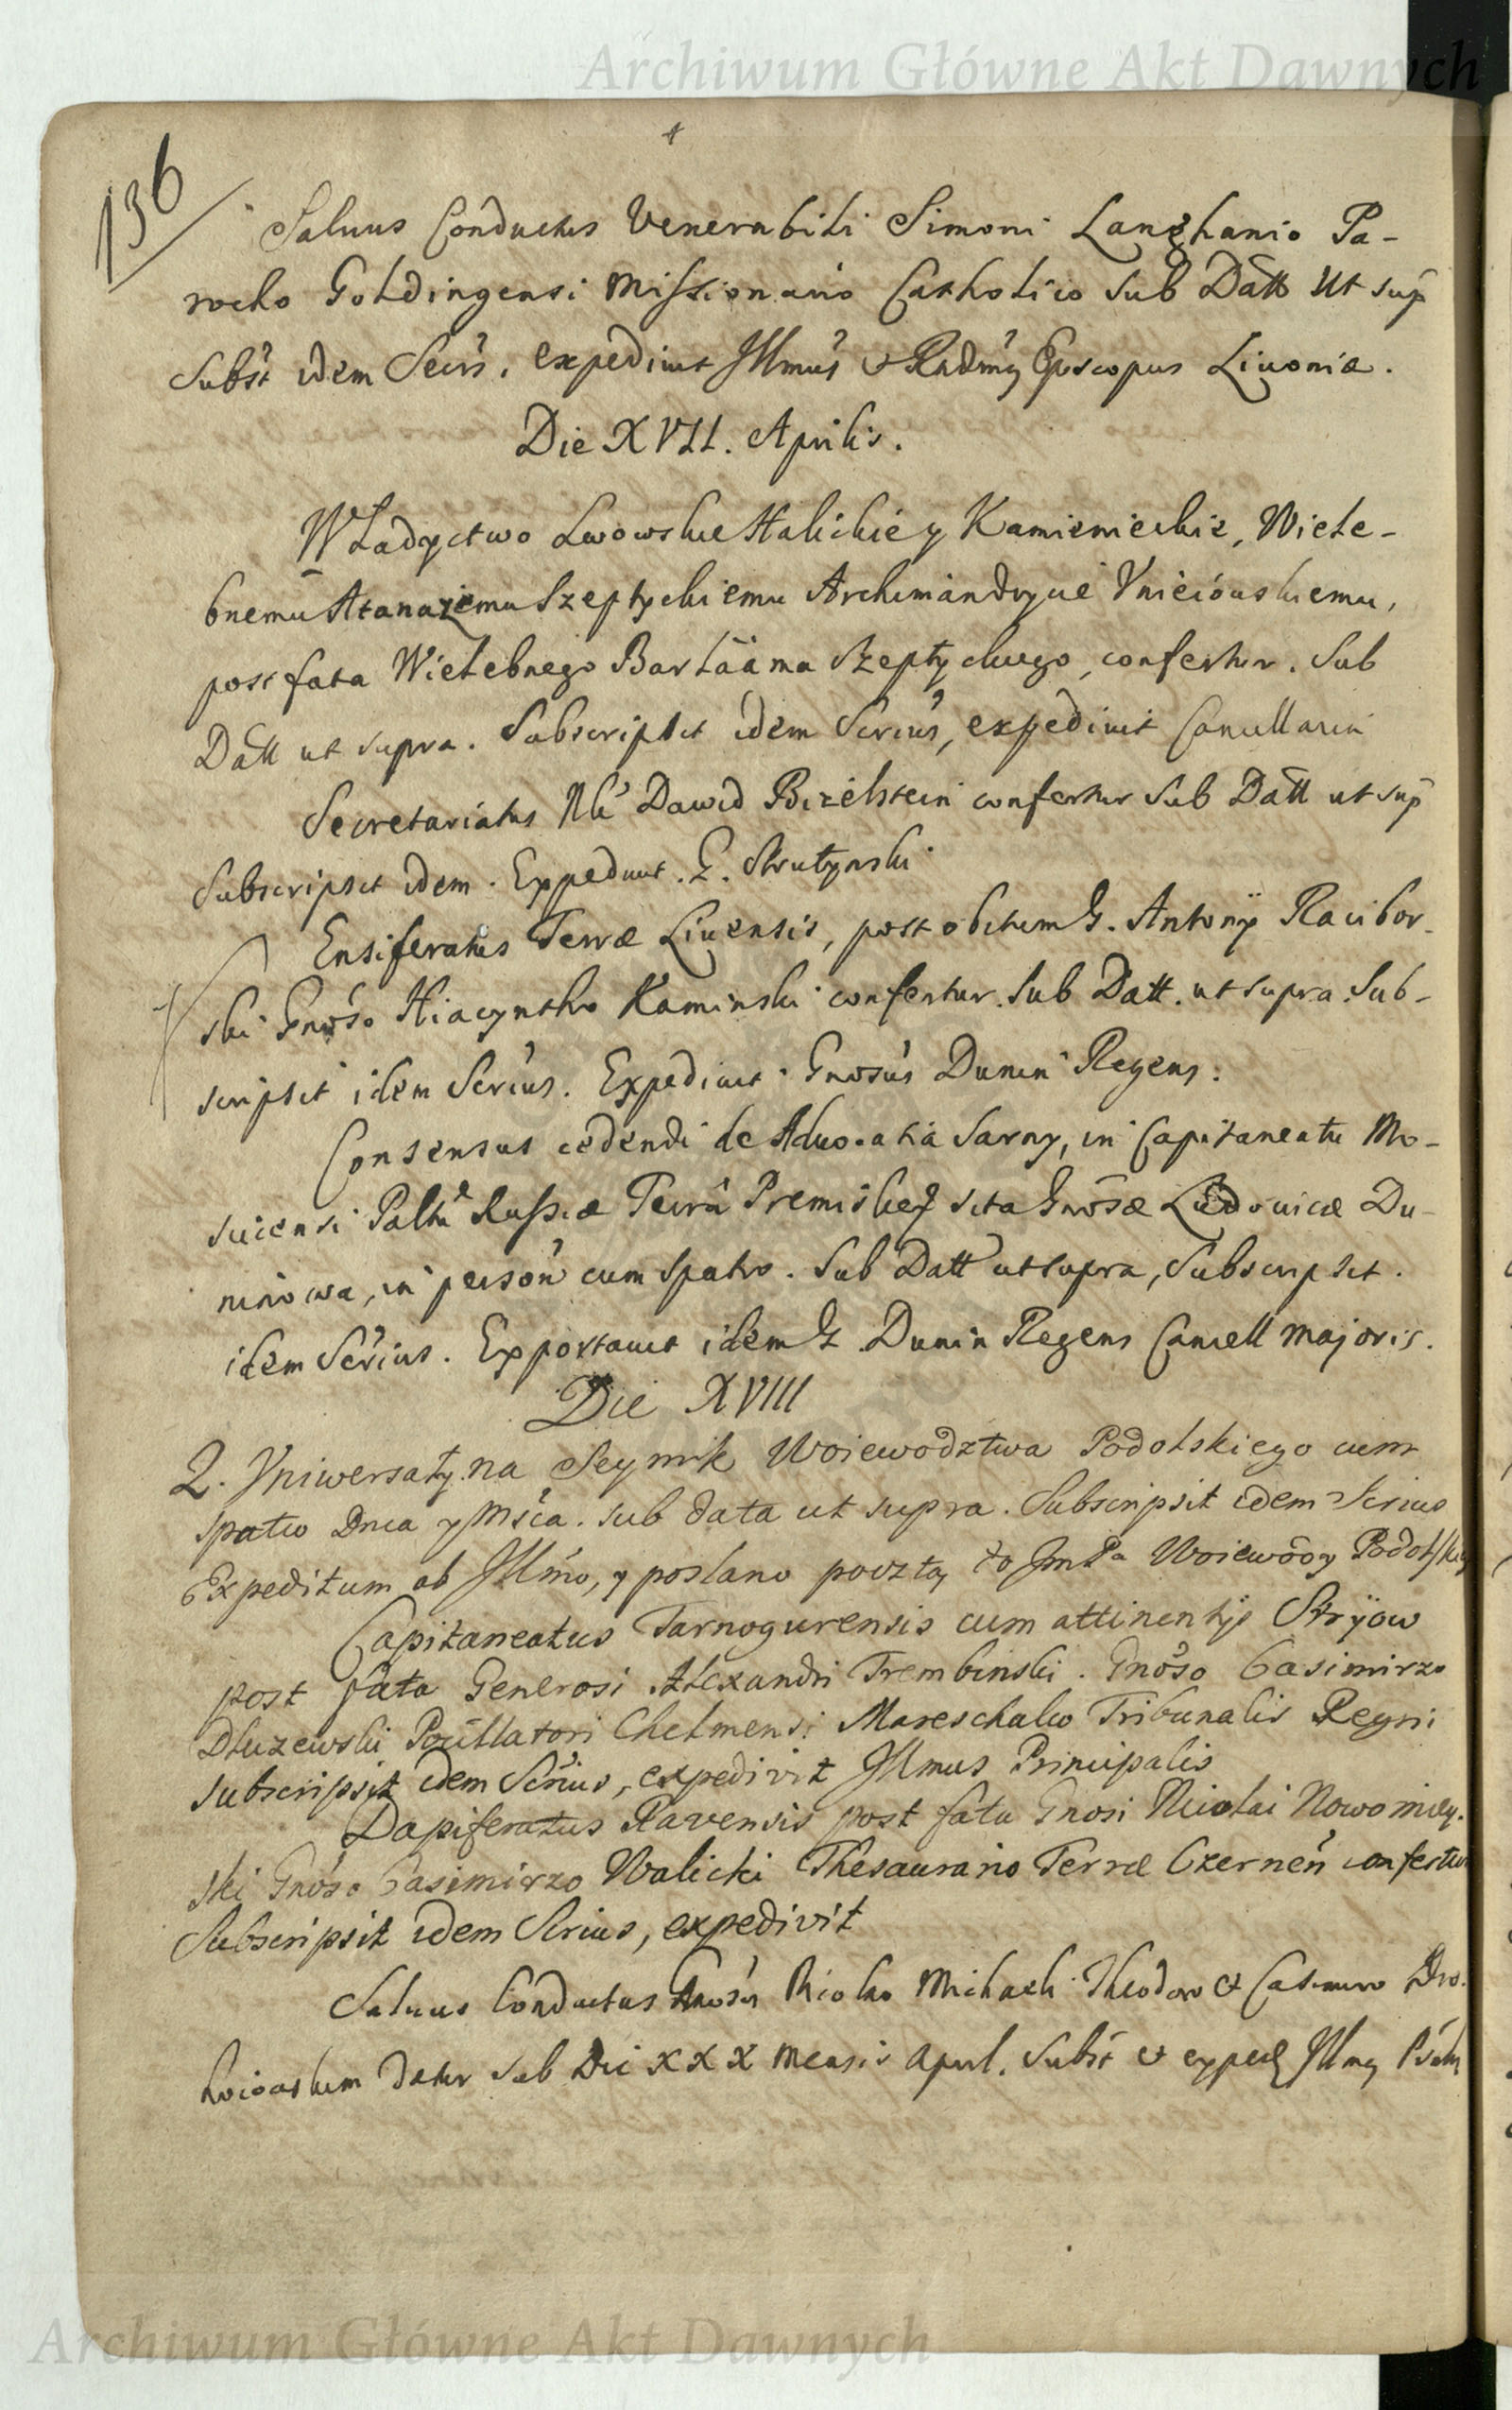 Archiwum Główne Akt Dawnych
136
Salvus Conductus Venerabili Simoni Langhanio Pa-
rocho Goldingensi Missionario Catholico Sub Datt Ut sup
Subst idem Secrs. expedivit Illmus & Rndmg Episcopus Livoniæ.
Die XVII. Aprilis.
Władyctwo Lwowskie Halickie y Kamienieckie, Wiele-
bnemu Atanazemu Szeptyckiemu Archimandrycie Vniejowskiemu,
post fata Wielebnego Barłaama Szeptyckiego, confertur. Sub
Datt ut supra. Subscripsit idem Scrius, expedivit Cancellarii
Secretariatus Dawid confertur Sub Datt ut sup
Subscripsit idem. Expedivit. G. Strutynski
Ensiferatus Terræ Livensis, post obitum G. Antonÿ Racibor-
ski Gnoso Hiacyntho Kaminski confertur. Sub Datt. ut supra. Sub-
scripsit idem Scrius. Expedivit Gnosus Dunin Regens.
Consensus cedendi de Advocatia Sarny, in Capitaneatu Mo-
sciensi Paltu Russiæ Terra Premisl sita Gnosæ Ludovicæ Du-
ninowa, in person cum spatio. Sub Datt ut supra, Subscripsit.
idem Scrius. Exportavit idem G Dunin Regens Cancell majoris.
Die XVIII
2. Vniwersały na Seymik Woiewodztwa Podolskiego cum
spatio Dnia y Msca. sub data ut supra. Subscripsit idem Scrius
Expeditum ab Illmo, y posłano pocztą do JmPa Woiewody Podolskieg
Capitaneatus Tarnogurensis cum attinentijs Strÿow
post fata Generosi Alexandri Trembinski. Gnoso Casimirzo
Dłuzewski Pocillatori Chelmensi Mareschalco Tribunalis Regni
subscripsit idem Scrius, expedivit Illmus Principalis
Dapiferatus Ravensis post fata Gnosi Nicolai Nowomiey-
ski Gnoso Casimirzo Walicki Thesaurario Terræ Czernen confertur
Subscripsit idem Scrius, expedivit
Salvus Conductus Gnosis Nicolao Michaeli Theodoro & Casimiro Dro-
hoiowskim datur sub Die XXX mensis April. Subst & exped Illmg
Archiwum Główne Akt Dawnych